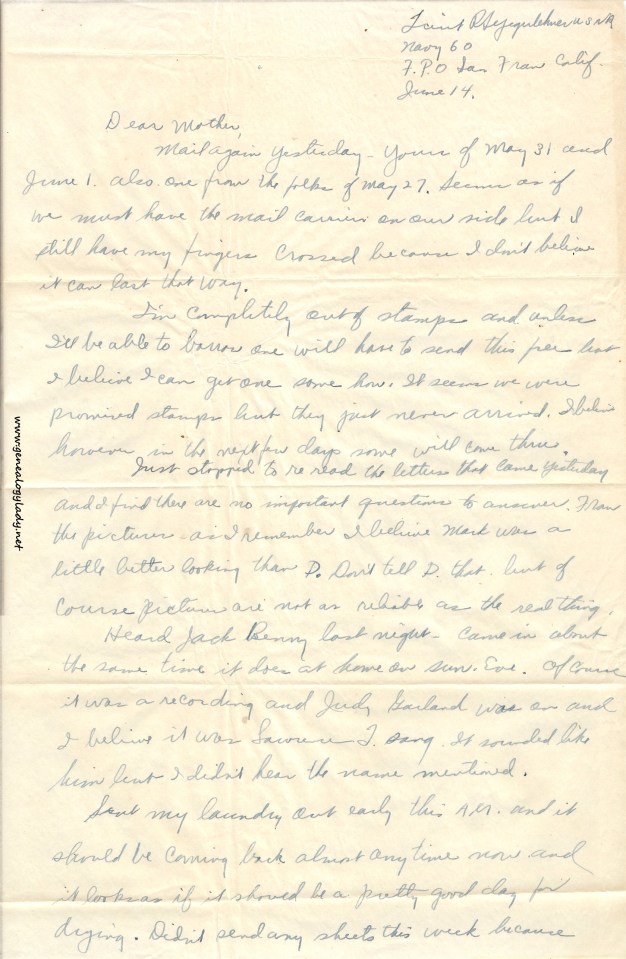 Navy 60
F.P.O San Fran Calif.
June 14.
Dear Mother,
Mail again yesterday - yours of May 31 and
June 1. also one from the folks of May 27. Seems as if
we must have the mail carriers on our side but I
still have my fingers crossed because I don't believe
it can last that way.
I'm completely out of stamps and unless
I'll be able to borrow one will have to send this free but
I believe I can get one some how. It seems we were
promised stamps but they just never arrived. I believe
however in the next few days some will come thru.
Just stopped to re read the letters that came yesterday
and I find there are no important questions to answer. From
the pictures as I remember I believe Mark was a
little better looking than P. Don't tell P. that. but of
course pictures are not as reliable as the real thing.
Heard Jack Benny last night - came in about
the same time it does at home on Sun. Eve. Of course
it was a recording and Judy Garland was on and
I believe it was Lawrence T. sang. It sounded like
him but I didn't hear the name mentioned.
Sent my laundry out early this A.M. and it
should be coming back almost anytime now and
it looks as if it should be a pretty good day for
drying. Didn't send any sheets this week because
www.genealogylady.net